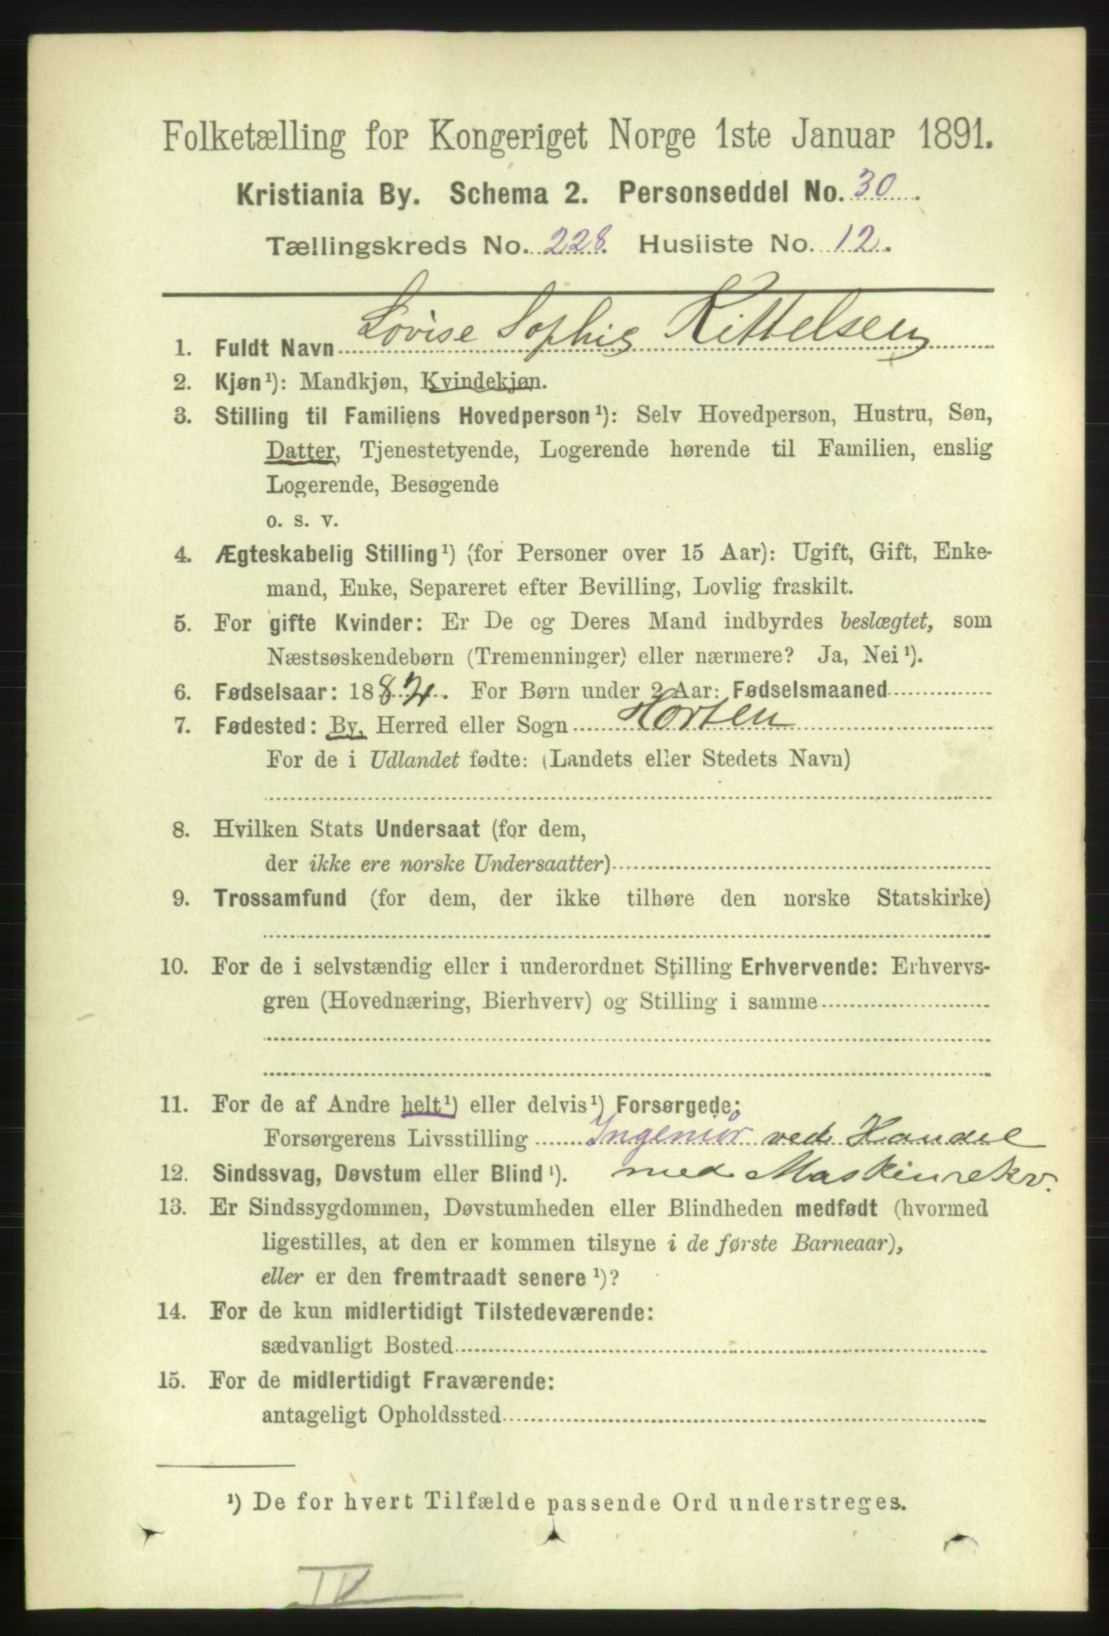 Folketælling for Kongeriget Norge 1ste Januar 1891.
Kristiania By. Schema 2. Personseddel No. 30.
Tællingskreds No. 228. Husliste No. 12.
1. Fuldt Navn Lovise Sophie Kittelsen
2. Kjøn¹): Mandkjøn, Kvindekjøn.
3. Stilling til Familiens Hovedperson¹): Selv Hovedperson, Hustru, Søn,
Datter, Tjenestetyende, Logerende hørende til Familien, enslig
Logerende, Besøgende
o. s. v.
4. Ægteskabelig Stilling¹) (for Personer over 15 Aar): Ugift, Gift, Enke-
mand, Enke, Separeret efter Bevilling, Lovlig fraskilt.
5. For gifte Kvinder: Er De og Deres Mand indbyrdes beslægtet, som
Næstsøskendebørn (Tremenninger) eller nærmere? Ja, Nei¹).
6. Fødselsaar: 1882. For Børn under 2 Aar: Fødselsmaaned
7. Fødested: By, Herred eller Sogn Horten
For de i Udlandet fødte: (Landets eller Stedets Navn)
8. Hvilken Stats Undersaat (for dem,
der ikke ere norske Undersaatter)
9. Trossamfund (for dem, der ikke tilhøre den norske Statskirke)
10. For de i selvstændig eller i underordnet Stilling Erhvervende: Erhvervs-
gren (Hovednæring, Bierhverv) og Stilling i samme
11. For de af Andre helt¹) eller delvis¹) Forsørgede:
Forsørgerens Livsstilling Ingeniør ved Handel
12. Sindssvag, Døvstum eller Blind¹). med Maskinrekv.
13. Er Sindssygdommen, Døvstumheden eller Blindheden medfødt (hvormed
ligestilles, at den er kommen tilsyne i de første Barneaar),
eller er den fremtraadt senere¹)?
14. For de kun midlertidigt Tilstedeværende:
sædvanligt Bosted
15. For de midlertidigt Fraværende:
antageligt Opholdssted
¹) De for hvert Tilfælde passende Ord understreges.
IV